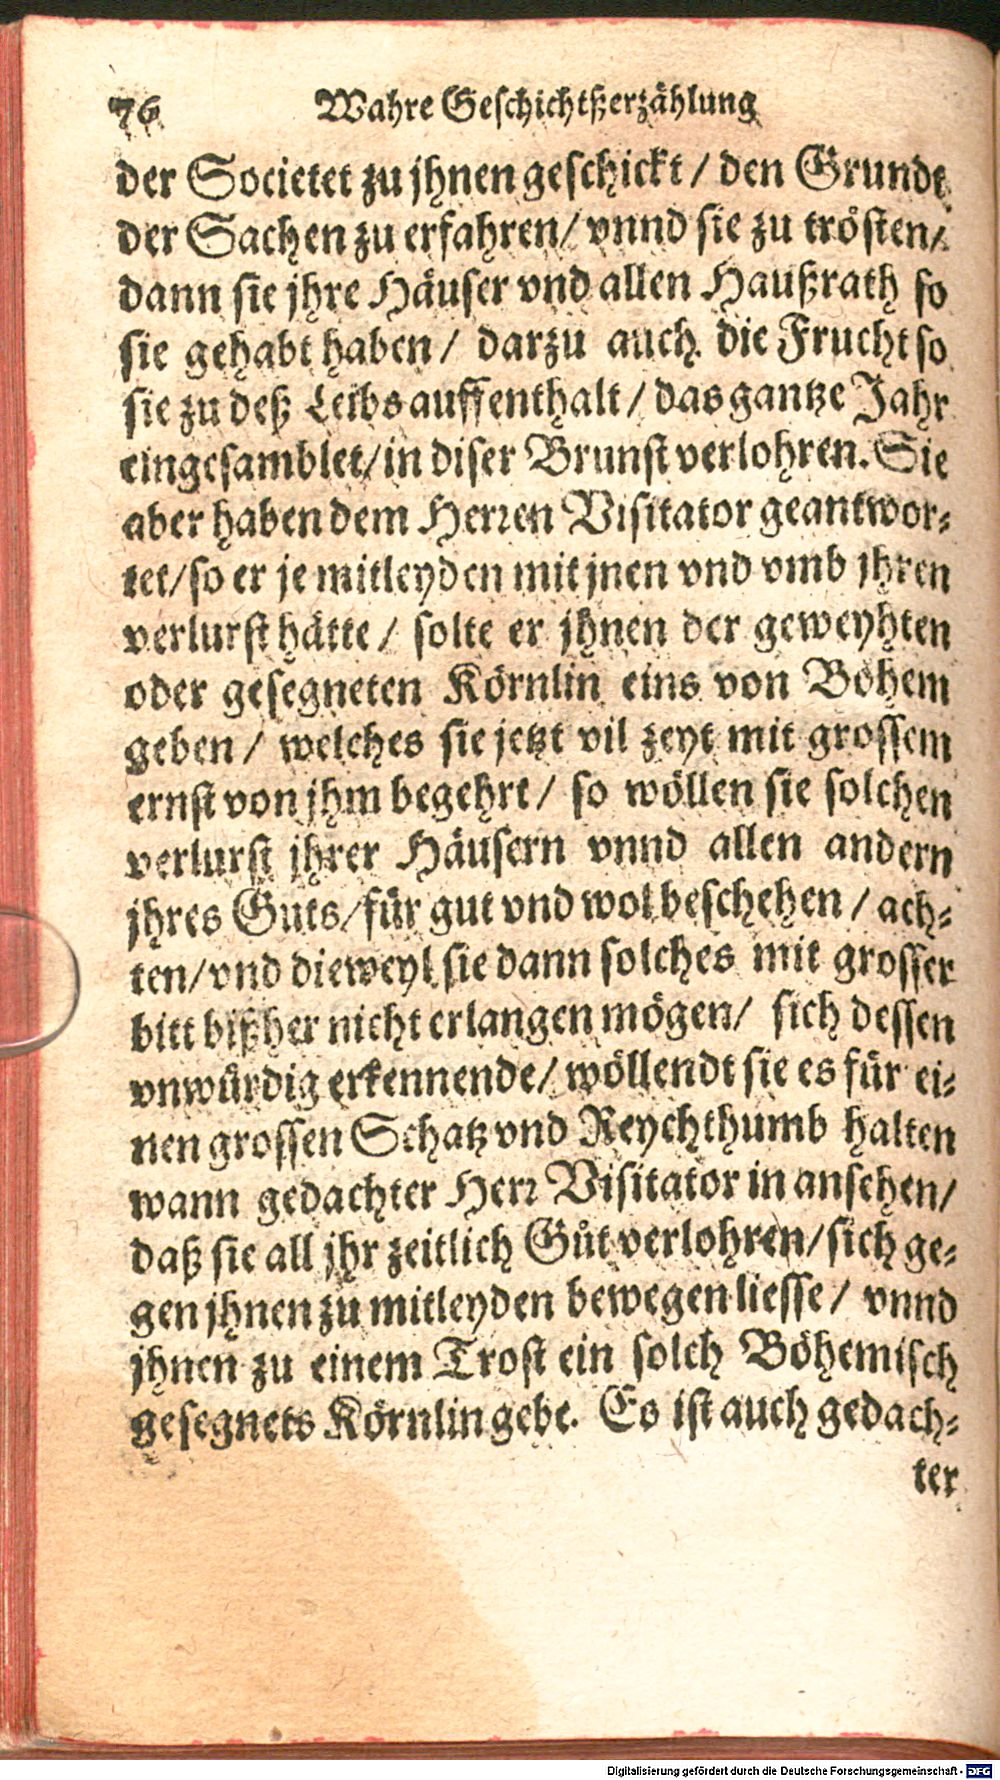 76 Wahre Geschichtßerzählung
der Societet zu jhnen geschickt / den Grundt
der Sachen zu erfahren / vnnd sie zu trösten /
dann sie jhre Häuser vnd allen Haußrath so
sie gehabt haben / darzu auch die Frucht so
sie zu deß Leibs auffenthalt / das gantze Jahr
eingesamblet / in diser Brunst verlohren. Sie
aber haben dem Herren Visitator geantwor-
tet / so er je mitleyden mit jnen vnd vmb jhren
verlurst hätte / solte er jhnen der geweyhten
oder gesegneten Körnlin eins von Böhem
geben / welches sie jetzt vil zeyt mit grossem
ernst von jhm begehrt / so wöllen sie solchen
verlurst jhrer Häusern vnnd allen andern
jhres Guts / für gut vnd wol beschehen / ach-
ten / vnd dieweyl sie dann solches mit grosser
bitt bißher nicht erlangen mögen / sich dessen
vnwürdig erkennende / wöllendt sie es für ei-
nen grossen Schatz vnd Reychthumb halten
wann gedachter Herr Visitator in ansehen /
daß sie all jhr zeitlich Gůt verlohren / sich ge-
gen jhnen zu mitleyden bewegen liesse / vnnd
jhnen zu einem Trost ein solch Böhemisch
gesegnets Körnlin gebe. Es ist auch gedach-
ter
Digitalisierung gefördert durch die Deutsche Forschungsgemeinschaft - DFG